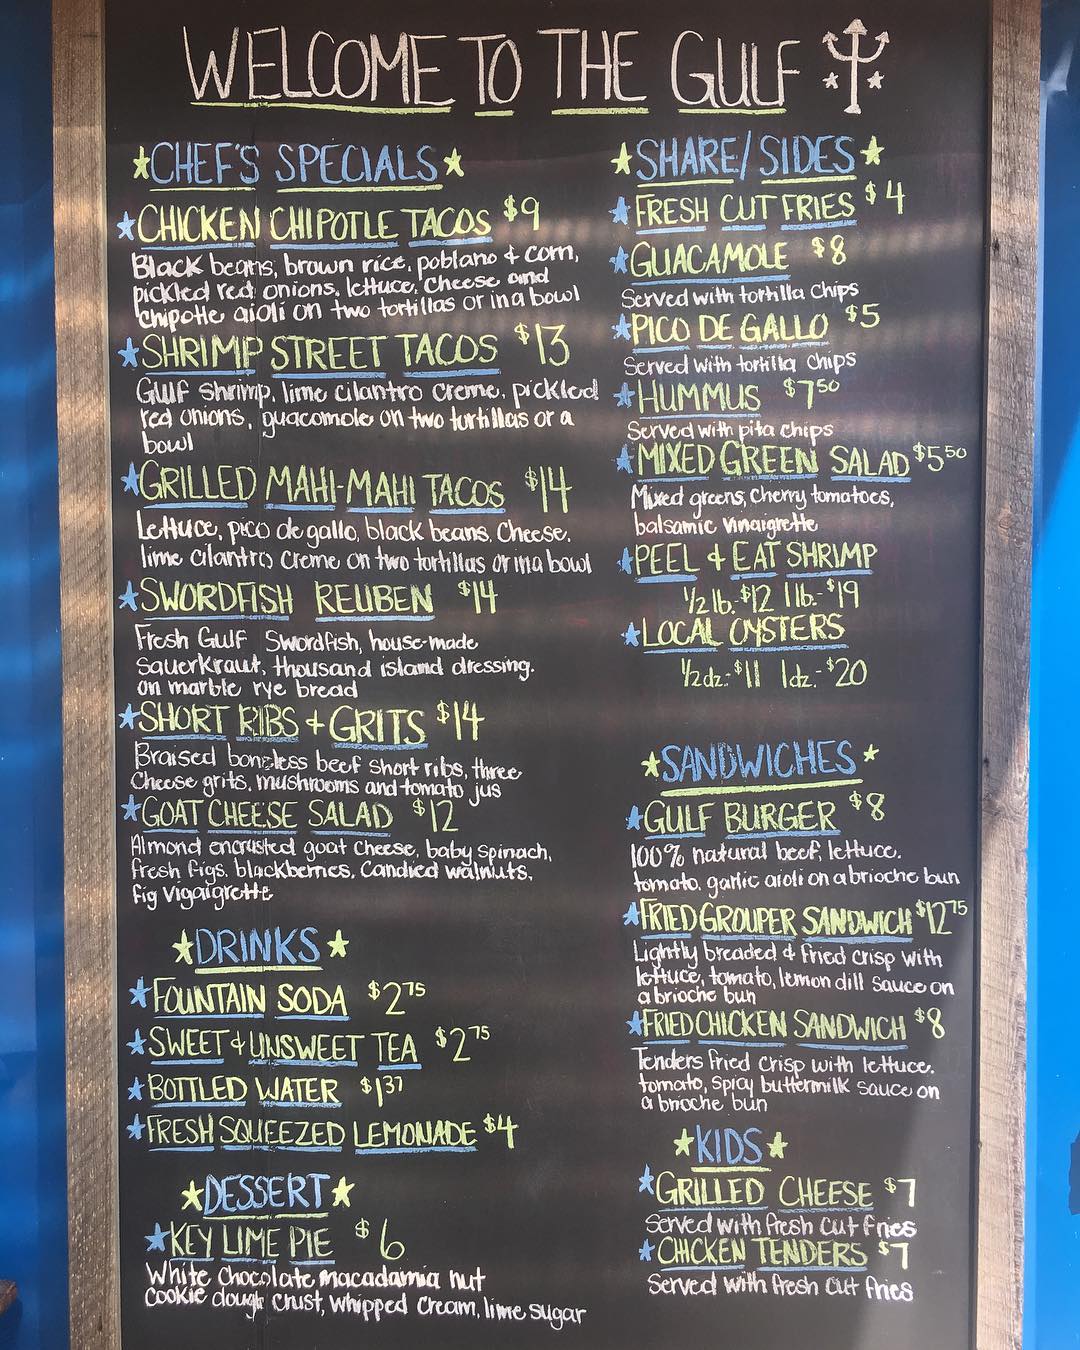 WELCOME TO THE GULF
CHEF'S SPECIALS
CHICKEN CHIPOTLE TACOS $9
Black beans, brown rice, poblano & corn,
pickled red onions, lettuce, cheese and
chipotle aioli on two tortillas or in a bowl
SHRIMP STREET TACOS $13
Gulf shrimp, lime cilantro creme, pickled
red onions, guacomole on two tortillas or a
bowl
GRILLED MAHI-MAHI TACOS $14
Lettuce, pico de gallo, black beans, cheese,
lime cilantro creme on two tortillas or in a bowl
SWORDFISH REUBEN $14
Fresh Gulf Swordfish, house-made
Sauerkraut, thousand island dressing.
on marble rye bread
SHORT RIBS + GRITS $14
Braised boneless beef short ribs, three
Cheese grits, mushrooms and tomato jus
GOAT CHEESE SALAD $12
Almond encrusted goat cheese, baby spinach,
fresh figs, blackberries, candied walnuts,
fig vigaigrette
DRINKS
FOUNTAIN SODA $2.75
SWEET & UNSWEET TEA $2.75
BOTTLED WATER $1.37
FRESH SQUEEZED LEMONADE $4
DESSERT
KEY LIME PIE $6
White chocolate macadamia nut
cookie dough crust, whipped cream, lime sugar
SHARE/SIDES
FRESH CUT FRIES $4
GUACAMOLE $8
Served with tortilla chips
PICO DE GALLO $5
Served with tortilla chips
HUMMUS $7.50
Served with pita chips
MIXED GREEN SALAD $5.50
Mixed greens, cherry tomatoes,
balsamic vinaigrette
PEEL & EAT SHRIMP
1/2 lb.-$12 1 lb.-$19
LOCAL OYSTERS
1/2 dz.-$11 1dz.-$20
SANDWICHES
GULF BURGER $8
100% natural beef, lettuce.
tomato, garlic aioli on a brioche bun
FRIED GROUPER SANDWICH $12.75
Lightly breaded & fried crisp with
lettuce, tomato, lemon dill sauce on
a brioche bun
FRIED CHICKEN SANDWICH $8
Tenders fried crisp with lettuce.
tomato, spicy buttermilk sauce on
a brioche bun
KIDS
GRILLED CHEESE $7
Served with fresh cut fries
CHICKEN TENDERS $7
Served with fresh cut fries